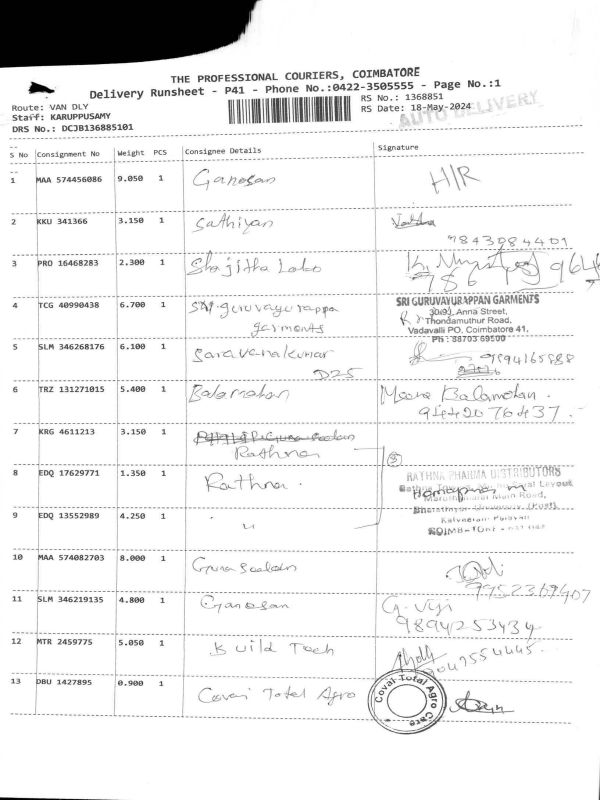 THE PROFESSIONAL COURIERS, COIMBATORE
Delivery Runsheet - P41 - Phone No.:0422-3505555 - Page No.:1
Route: VAN DLY
RS No.: 1368851
Staff: KARUPPUSAMY
RS Date: 18-May-2024
AUTO DELIVERY
DRS No.: DCJB136885101
S No Consignment No Weight PCS Consignee Details Signature
1 MAA 574456086 9.050 1 Ganesan H/R
2 KKU 341366 3.150 1 Sathiyan
9843084401
3 PRO 16468283 2.300 1 Shajitha Loko
4 TCG 40990438 6.700 1 Sri guruvayurappa
garments
SRI GURUVAYURAPPAN GARMENTS
Anna Street,
Thondamuthur Road,
Vadavalli PO, Coimbatore 41,
Ph : 88703 69500
5 SLM 346268176 6.100 1 Saravanakumar
D25
9894165888
6 TRZ 131271015 5.400 1 Balamohan Meena Balamohan.
9442076437.
7 KRG 4611213 3.150 1
Rathna
3
8 EDQ 17629771 1.350 1 Rathna.
RATHNA PHARMA DISTRIBUTORS
Main Road,
9 EDQ 13552989 4.250 1 "
10 MAA 574082703 8.000 1 Guna Seelan
9952369407
11 SLM 346219135 4.800 1 Ganesan G. Viji
9894253434
12 MTR 2459775 5.050 1 Build Tech
13 DBU 1427895 0.900 1 Covai Total Agro
Covai Total Agro Care